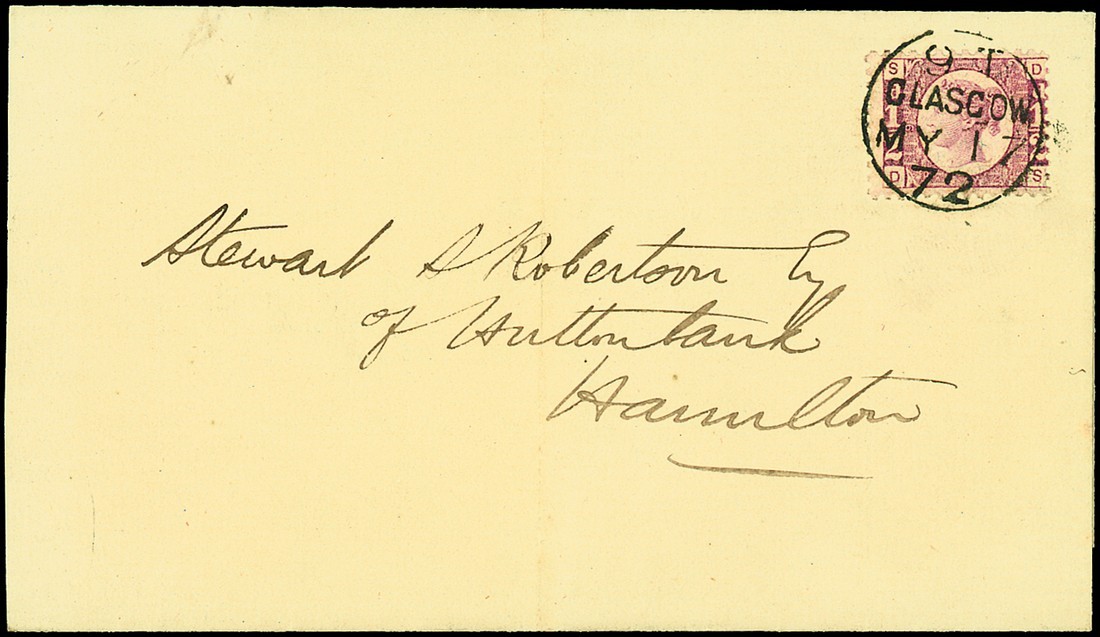 S D
9 T
GLASGOW
MY 17
72
D S
Stewart S Robertson Esq
of Huttonbank
Hamilton